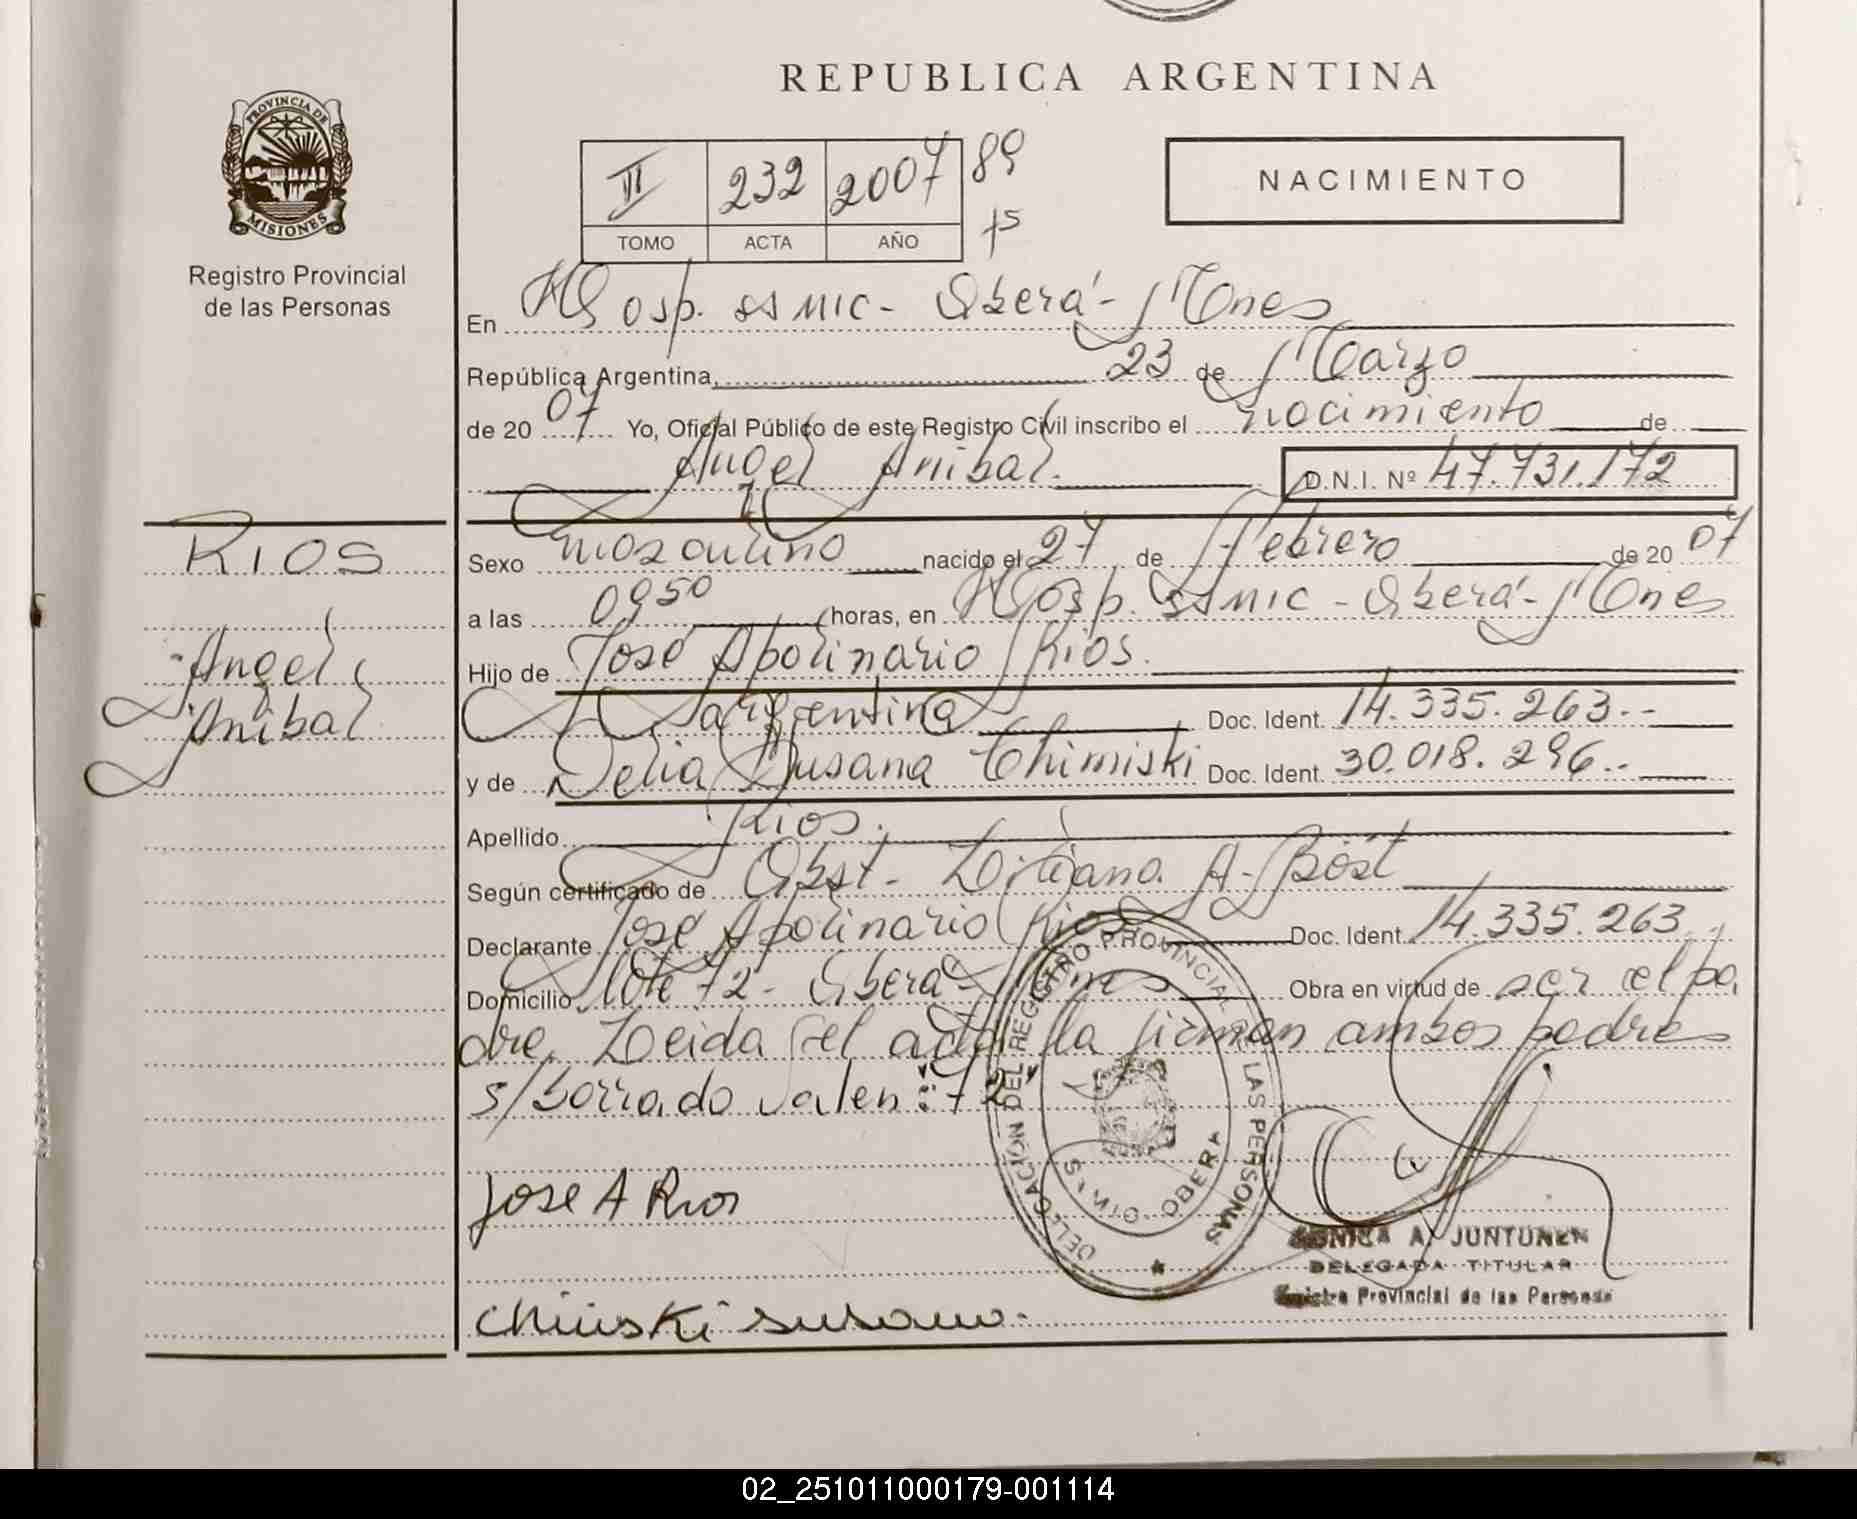 REPUBLICA ARGENTINA
PROVINCIA DE
MISIONES
Registro Provincial
de las Personas
II 232 2007 89
TOMO ACTA AÑO
NACIMIENTO
En Hosp. SSMIC - Oberá - Mnes
República Argentina, 23 de Marzo
de 2007 Yo, Oficial Público de este Registro Civil inscribo el nacimiento de
Angel Anibal. D.N.I. Nº 47.731.172
RIOS
Angel
Anibal
Sexo masculino nacido el 27 de Febrero de 2007
a las 09 50 horas, en Hosp. SSMIC - Oberá - Mnes
Hijo de José Apolinario Rios.
argentina Doc. Ident. 14.335.263.-
y de Delia Susana Chimiski Doc. Ident. 30.018.296.-
Apellido Rios.
Según certificado de Obst. Liliana A. Böst
Declarante José Apolinario Rios Doc. Ident. 14.335.263.
Domicilio lote 72 - Oberá - Mnes Obra en virtud de ser el pa
dre. Leida el acta la firman ambos padres
s/borrado valen: "72"
DELEGACION DEL REGISTRO PROVINCIAL DE LAS PERSONAS
OBERA
Jose A Rios
MONICA A. JUNTUNEN
DELEGADA TITULAR
Registro Provincial de las Personas
Chimiski susana.
02_251011000179-001114